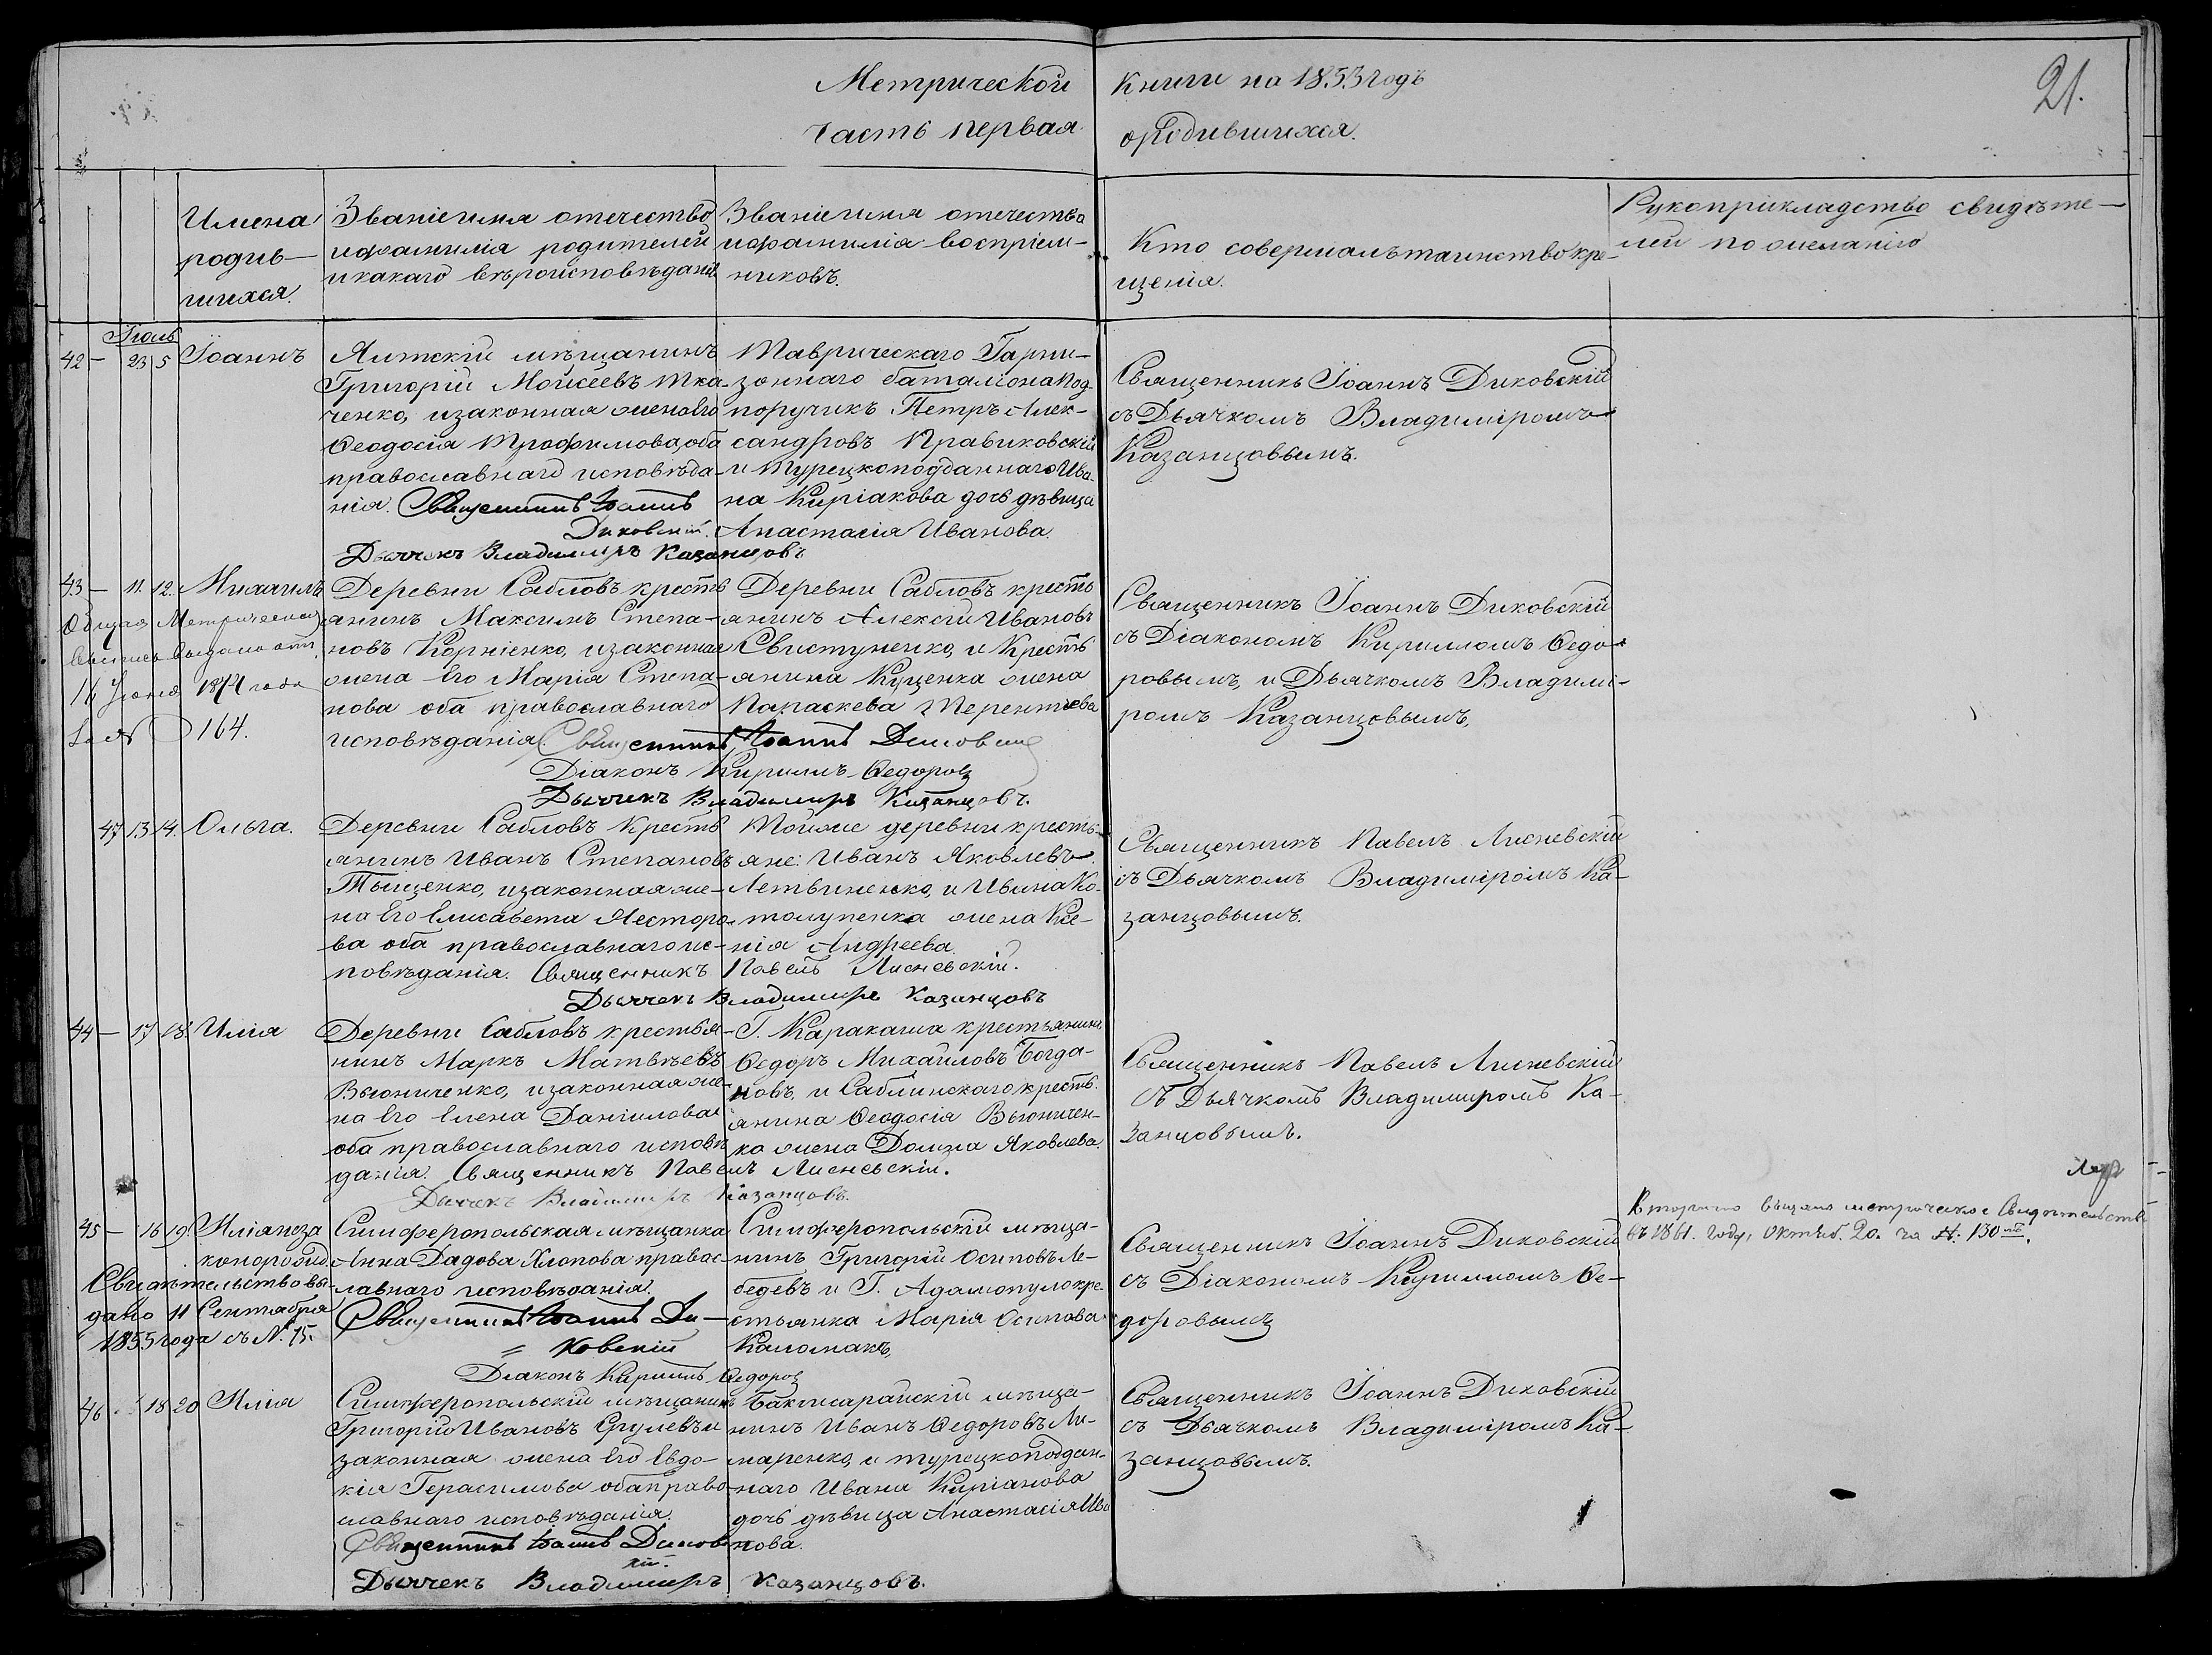 Метрической книги на 1853 годъ
21.
часть первая о родившихся.
Имена родившихся.
Званіе имя отечество
и фамилія родителей
и какаго вѣроисповѣданія
Званіе имя отечество
и фамилія воспріем-
никовъ.
Кто совершалъ таинство кре-
щенія.
Рукоприкладство свидѣте-
лей по желанію
Іюль
42 — 23 5 Іоаннъ
Ялтскій мѣщанинъ
Григорій Моисеевъ Тка-
ченко, и законная жена его
Ѳеодосія Трофимова, оба
православнаго исповѣда-
нія. Священникъ Іоаннъ
Диковскій.
Дьячекъ Владимиръ Казанцовъ
Таврическаго Гарни-
зоннаго баталіона Под-
поручикъ Петръ Алек-
сандровъ Правиковскій
и Турецкоподданнаго Ива-
на Киріакова дочь дѣвица
Анастасія Иванова.
Священникъ Іоаннъ Диковскій
съ Дьячкомъ Владиміромъ
Казанцовымъ.
43 — 11. 12. Михаилъ
Метрическая
выдана
164.
Деревни Сабловъ кресть
янинъ Максимъ Степа-
новъ Корніенко, и законная
жена его Марія Степа-
нова оба православнаго
исповѣданія. Священникъ Іоаннъ Диковскій
Діаконъ Кириллъ Ѳедоровъ
Дьячекъ Владимиръ Казанцовъ.
Деревни Сабловъ кресть
янинъ Алексій Ивановъ
Свистуненко, и Кресть
янина Куценка жена
Параскева Терентіева
Священникъ Іоаннъ Диковскій
съ Діакономъ Кирилломъ Ѳедо-
ровымъ, и Дьячкомъ Владими-
ромъ Казанцовымъ,
47 13 14. Ольга.
Деревни Сабловъ Кресть
янинъ Иванъ Степановъ
Тыщенко, и законная же-
на его Елисавета Несторо-
ва оба православнаго ис-
повѣданія. Священникъ Павелъ Лисневскій.
Дьячекъ Владимиръ Казанцовъ
Той же деревни кресть-
яне: Иванъ Яковлевъ
Летвиненко, и Ивана Ко-
толупенка жена Ксе-
нія Андреева
Священникъ Павелъ Лисневскій
съ Дьячкомъ Владиміромъ Ка-
занцовымъ.
44 — 17 18. Илія
Деревни Сабловъ крестья-
нинъ Маркъ Матвѣевъ
Вьюниченко, и законная же-
на его Елена Даніилова
оба православнаго исповѣ
данія. Священникъ Павелъ Лисневскій.
Дьячекъ Владимиръ Казанцовъ.
Г. Каракаша крестьянинъ
Ѳедоръ Михайловъ Богда-
новъ, и Саблинскаго кресть-
янина Ѳеодосія Вьюничен-
ко жена Домна Яковлева.
Священникъ Павелъ Лисневскій
Съ Дьячкомъ Владимиромъ Ка-
занцовымъ.
45 — 16 19. Илія неза
конорожд.
Свидѣтельство вы-
дано 11 Сентября
1855 года съ №. 75.
Симферопольская мѣщанка
Анна Дадова Хлопова правос-
лавнаго исповѣданія.
Священникъ Іоаннъ Ди-
ковскій
Діаконъ Кириллъ Ѳедоровъ
Симферопольскій мѣща-
нинъ Григорій Осиповъ Ле-
бедевъ и Г. Адамопуло кре-
стьянка Марія Осипова
Каломакъ,
Священникъ Іоаннъ Диковскій
съ Діакономъ Кирилломъ Ѳе-
доровымъ
Вторично выдано метрическое Свидѣтельство
въ 1861. году, Октяб. 20. за №. 130
46 18 20 Илія
Симферопольскій мѣщанинъ
Григорій Ивановъ Ерулевъ и
законная жена его Евдо-
кія Герасимова оба право-
славнаго исповѣданія.
Священникъ Іоаннъ Диков
кій.
Дьячекъ Владимиръ Казанцовъ.
Бакчисарайскій мѣща-
нинъ Иванъ Ѳедоровъ Ли-
маренко, и турецкоподдан-
наго Ивана Киріакова
дочь дѣвица Анастасія Ива
нова.
Священникъ Іоаннъ Диковскій
съ Дьячкомъ Владиміромъ Ка-
занцовымъ.